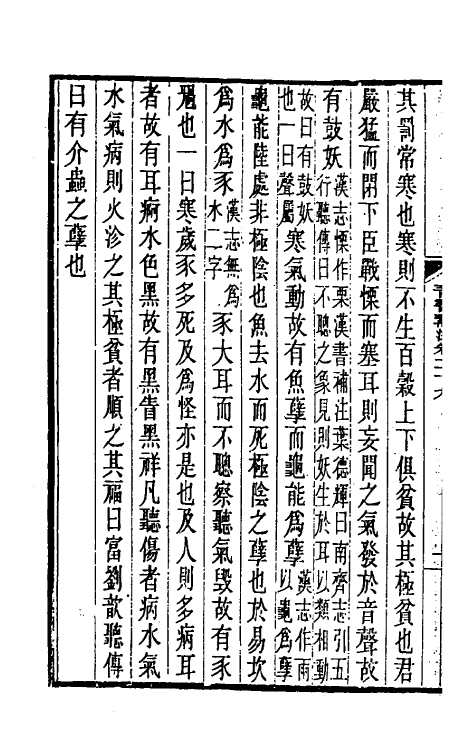 其罰常寒也寒則不生百穀上下俱貧故其極貧也君
嚴猛而閉下臣戰慄而塞耳則妄聞之氣發於音聲故
有鼓妖漢志慄作栗漢書補注葉德輝曰南齊志引五行聽傳曰不聰之象見則妖生於耳以類相動
故曰有鼓妖也一曰聲屬寒氣動故有魚孽而龜能爲孽漢志作雨以龜爲孽
龜能陸處非極陰也魚去水而死極陰之孽也於易坎
爲水爲豕漢志無爲水二字豕大耳而不聰察聽氣毀故有豕
旤也一曰寒歲豕多死及爲怪亦是也及人則多病耳
者故有耳痾水色黑故有黑眚黑祥凡聽傷者病水氣
水氣病則火沴之其極貧者順之其福曰富劉歆聽傳
曰有介蟲之孽也